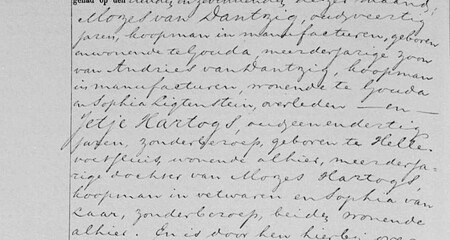 gehad op den tweeden en zevenden dezer maand;
Mozes van Dantzig, oud veertig
jaren, koopman in manufacturen, geboren
en wonende te Gouda, meerderjarige zoon
van Andries van Dantzig, koopman
in manufacturen, wonende te Gouda
en Sophia Ligtenstein, overleden — en —
Jetje Hartogs, oud eenendertig
jaren, zonder beroep, geboren te Helle-
voetsluis, wonende alhier, meerderja-
rige dochter van Mozes Hartogs,
koopman in vetwaren en Sophia van
Laar, zonder beroep, beiden wonende
alhier. En is door hen hierbij